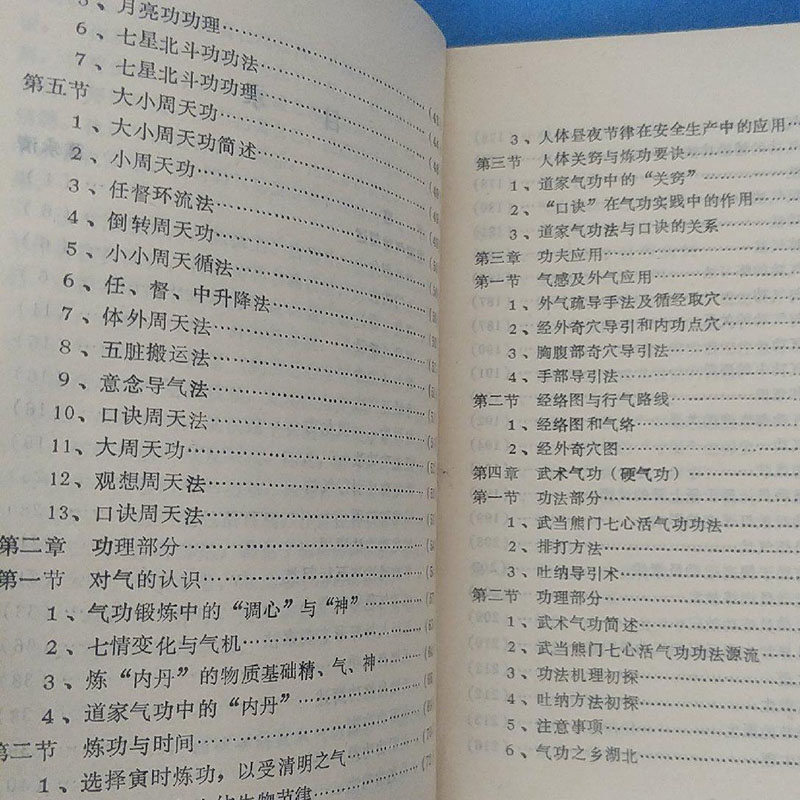 5、月亮功功理
6、七星北斗功功法
7、七星北斗功功理
第五节 大小周天功
1、大小周天功简述
2、小周天功
3、任督环流法
4、倒转周天功
5、小小周天循法
6、任、督、中升降法
7、体外周天法
8、五脏搬运法
9、意念导气法
10、口诀周天法
11、大周天功
12、观想周天法
13、口诀周天法
第二章 功理部分
第一节 对气的认识
1、气功锻炼中的“调心”与“神”
2、七情变化与气机
3、炼“内丹”的物质基础精、气、神
4、道家气功中的“内丹”
第二节 炼功与时间
1、选择寅时炼功，以受清明之气
生物节律
3、人体昼夜节律在安全生产中的应用
第三节 人体关窍与炼功要诀
1、道家气功中的“关窍”
2、“口诀”在气功实践中的作用
3、道家气功法与口诀的关系
第三章 功夫应用
第一节 气感及外气应用
1、外气疏导手法及循经取穴
2、经外奇穴导引和内功点穴
3、胸腹部奇穴导引法
4、手部导引法
第二节 经络图与行气路线
1、经络图和气络
2、经外奇穴图
第四章 武术气功（硬气功）
第一节 功法部分
1、武当熊门七心活气功功法
2、排打方法
3、吐纳导引术
第二节 功理部分
1、武术气功简述
2、武当熊门七心活气功功法源流
3、功法机理初探
4、吐纳方法初探
5、注意事项
6、气功之乡湖北